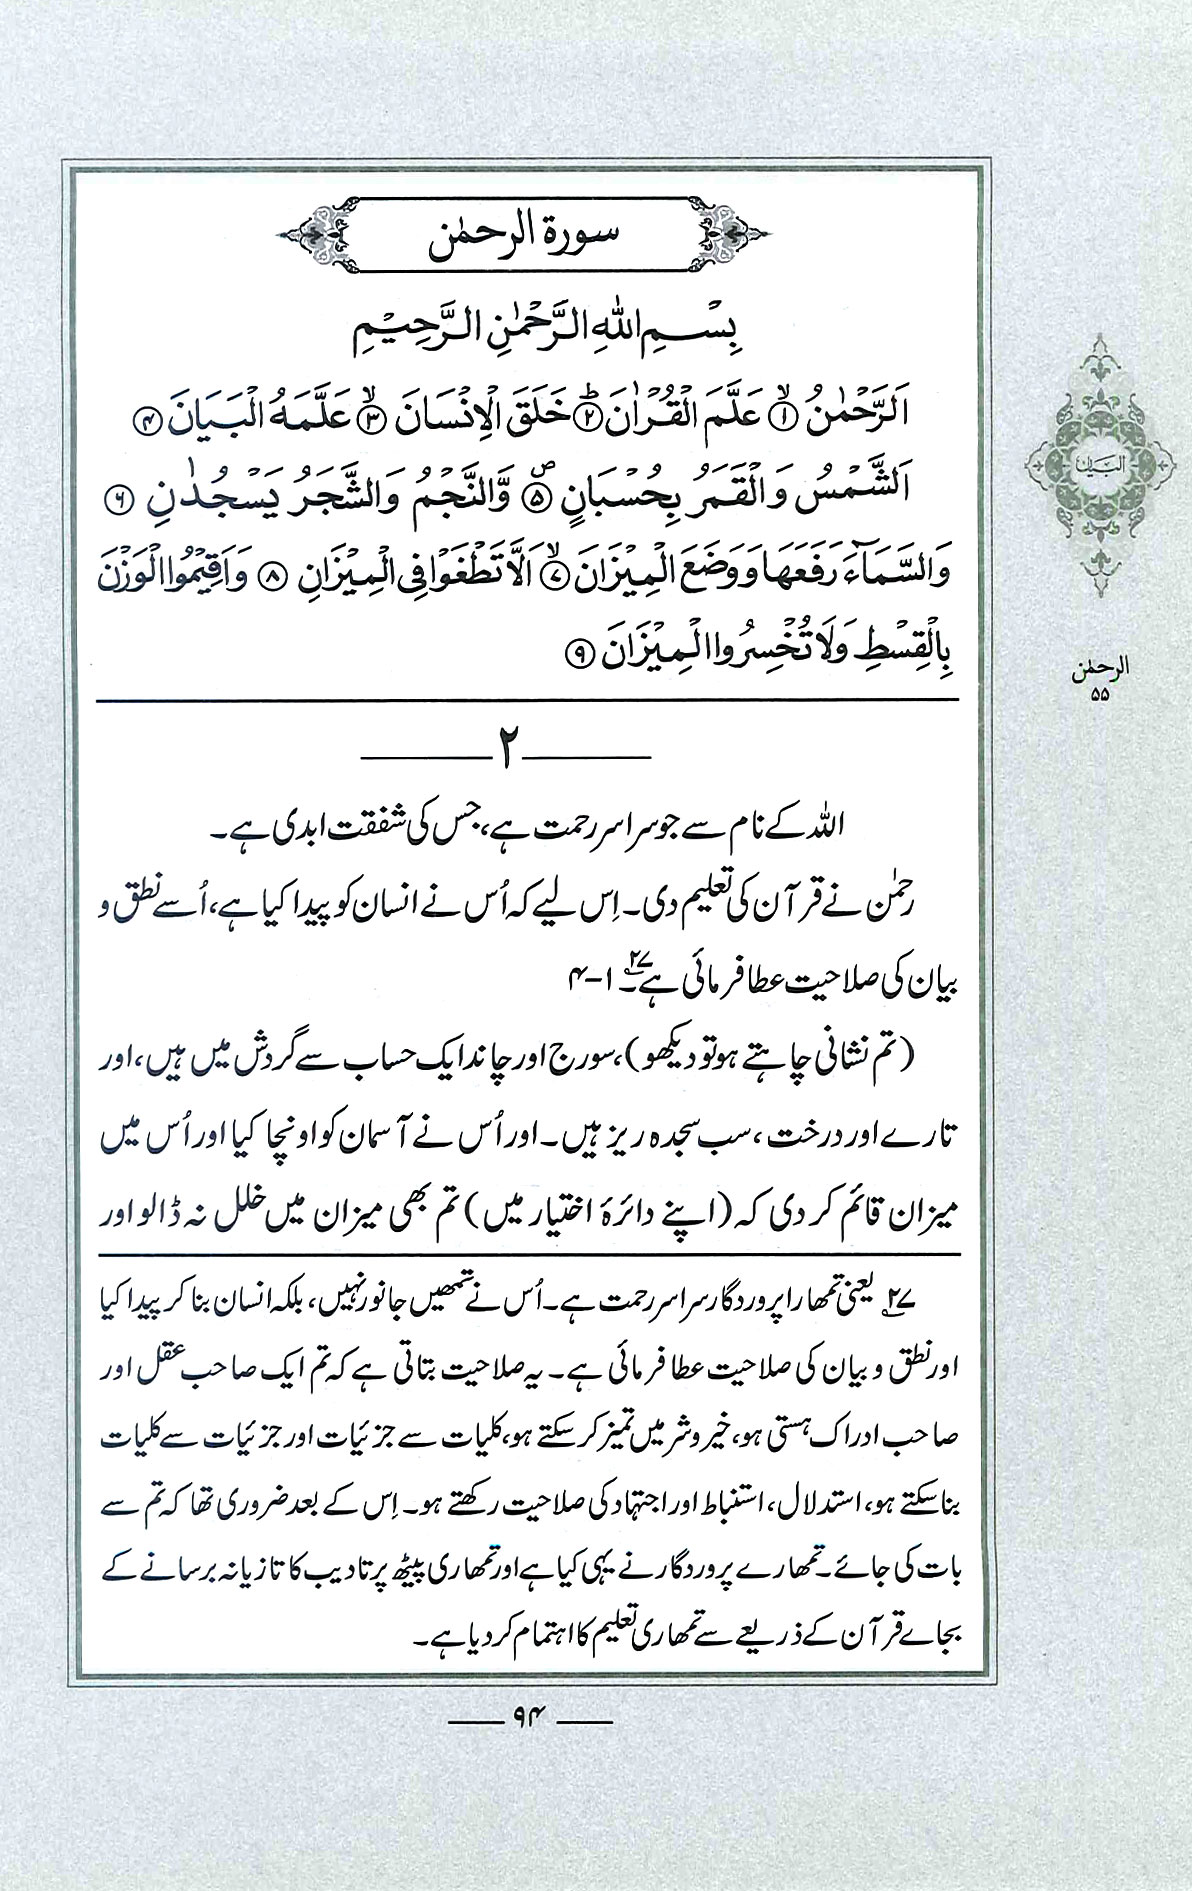 سورة الرحمٰن
بِسْمِ اللّٰهِ الرَّحْمٰنِ الرَّحِيْمِ
اَلرَّحْمٰنُ ﴿۱﴾ۙ عَلَّمَ الْقُرْاٰنَ ﴿۲﴾ؕ خَلَقَ الْاِنْسَانَ ﴿۳﴾ۙ عَلَّمَهُ الْبَيَانَ ﴿۴﴾
اَلشَّمْسُ وَالْقَمَرُ بِحُسْبَانٍ ﴿۵﴾ۖ وَّالنَّجْمُ وَالشَّجَرُ يَسْجُدٰنِ ﴿۶﴾
وَالسَّمَآءَ رَفَعَهَا وَوَضَعَ الْمِيْزَانَ ﴿۷﴾ۙ اَلَّا تَطْغَوْا فِي الْمِيْزَانِ ﴿۸﴾ وَاَقِيْمُوا الْوَزْنَ
بِالْقِسْطِ وَلَا تُخْسِرُوا الْمِيْزَانَ ﴿۹﴾
البیان
الرحمٰن
۵۵
۲
اللہ کے نام سے جو سراسر رحمت ہے، جس کی شفقت ابدی ہے۔
رحمٰن نے قرآن کی تعلیم دی۔ اِس لیے کہ اُس نے انسان کو پیدا کیا ہے، اُسے نطق و
بیان کی صلاحیت عطا فرمائی ہے۔۲۷ ۱-۴
(تم نشانی چاہتے ہو تو دیکھو)، سورج اور چاند ایک حساب سے گردش میں ہیں، اور
تارے اور درخت، سب سجدہ ریز ہیں۔ اور اُس نے آسمان کو اونچا کیا اور اُس میں
میزان قائم کر دی کہ (اپنے دائرۂ اختیار میں) تم بھی میزان میں خلل نہ ڈالو اور
۲۷ یعنی تمھارا پروردگار سراسر رحمت ہے۔ اُس نے تمھیں جانور نہیں، بلکہ انسان بنا کر پیدا کیا
اور نطق و بیان کی صلاحیت عطا فرمائی ہے۔ یہ صلاحیت بتاتی ہے کہ تم ایک صاحب عقل اور
صاحب ادراک ہستی ہو، خیر و شر میں تمیز کر سکتے ہو، کلیات سے جزئیات اور جزئیات سے کلیات
بنا سکتے ہو، استدلال، استنباط اور اجتہاد کی صلاحیت رکھتے ہو۔ اِس کے بعد ضروری تھا کہ تم سے
بات کی جائے۔ تمھارے پروردگار نے یہی کیا ہے اور تمھاری پیٹھ پر تادیب کا تازیانہ برسانے کے
بجاے قرآن کے ذریعے سے تمھاری تعلیم کا اہتمام کر دیا ہے۔
۹۴